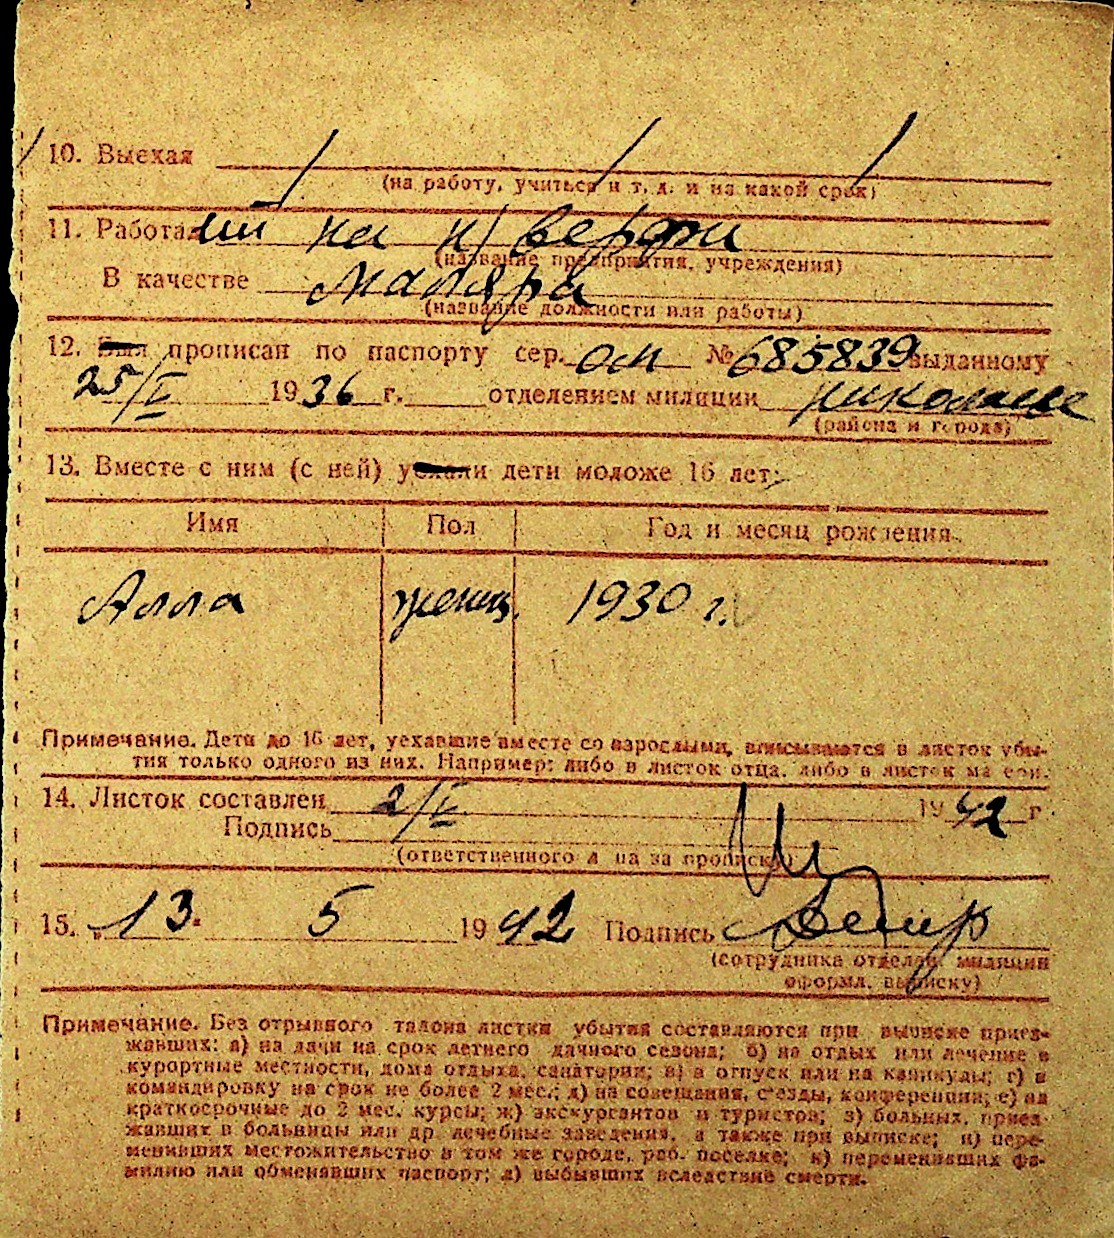 10. Выехал
(на работу, учиться и т. д. и на какой срок)
11. Работал на н/верфи
(название предприятия, учреждения)
В качестве маляра
(название должности или работы)
12. Был прописан по паспорту сер. № 685839 выданному
25/V 1936 г. отделением милиции
(района и города)
13. Вместе с ним (с ней) уехали дети моложе 16 лет:
Имя Пол Год и месяц рождения
Алла женщ. 1930 г.
Примечание. Дети до 16 лет, уехавшие вместе со взрослыми, вписываются в листок убы-
тия только одного из них. Например: либо в листок отца, либо в листок матери.
14. Листок составлен 2/V 1942 г
Подпись
(ответственного лица за прописку)
15. „13" 5 1942 Подпись
(сотрудника отделен. милиции
оформл. выписку)
Примечание. Без отрывного талона листки убытия составляются при выписке приез-
жавших: а) на дачи на срок летнего дачного сезона; б) на отдых или лечение в
курортные местности, дома отдыха, санатории; в) в отпуск или на каникулы; г) в
командировку на срок не более 2 мес.; д) на совещания, съезды, конференции; е) на
краткосрочные до 2 мес. курсы; ж) экскурсантов и туристов; з) больных, приез-
жавших в больницы или др. лечебные заведения, а также при выписке; и) пере-
менивших местожительство в том же городе, раб. поселке; к) переменивших фа-
милию или обменявших паспорт; л) выбывших вследствие смерти.